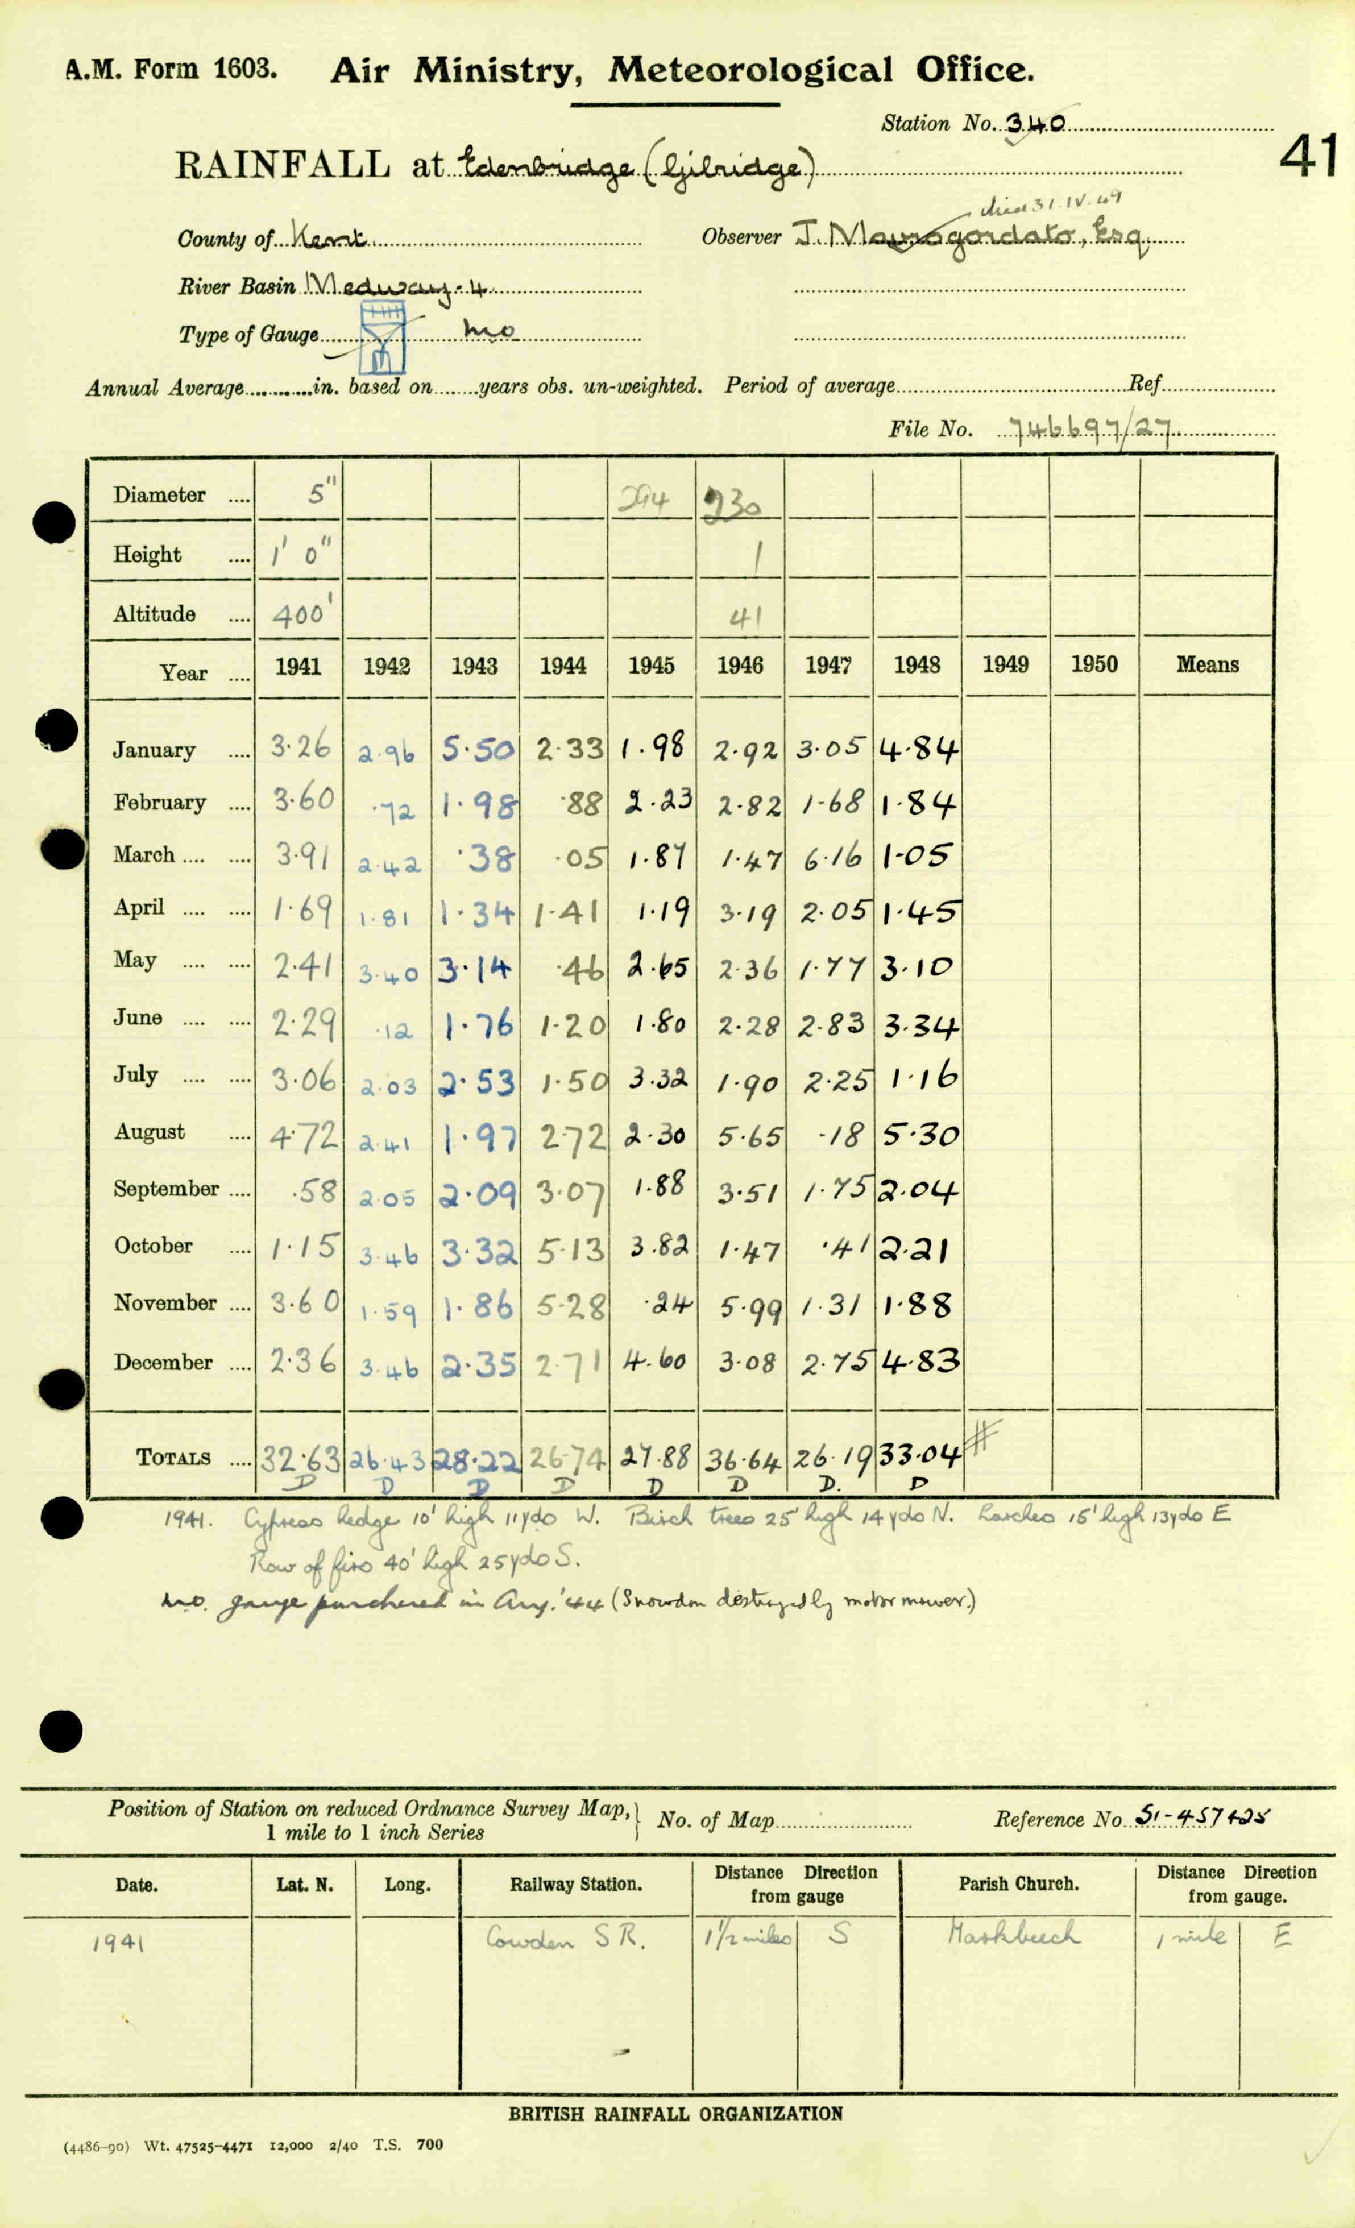 A.M. Form 1603. Air Ministry, Meteorological Office.
Station No. 340
41
RAINFALL at Edenbridge (Gilridge)
died 31.IV.49
County of Kent Observer J. Mavrogordato, Esq.
River Basin Medway - 4
Type of Gauge MO
Annual Average in. based on years obs. un-weighted. Period of average Ref.
File No. 746697/27
Diameter .... 5" 294 230
Height .... 1' 0" 1
Altitude .... 400' 41
Year .... 1941 1942 1943 1944 1945 1946 1947 1948 1949 1950 Means
January .... 3.26 2.96 5.50 2.33 1.98 2.92 3.05 4.84
February .... 3.60 .72 1.98 .88 2.23 2.82 1.68 1.84
March .... .... 3.91 2.42 .38 .05 1.87 1.47 6.16 1.05
April .... .... 1.69 1.81 1.34 1.41 1.19 3.19 2.05 1.45
May .... .... 2.41 3.40 3.14 .46 2.65 2.36 1.77 3.10
June .... .... 2.29 .12 1.76 1.20 1.80 2.28 2.83 3.34
July .... .... 3.06 2.03 2.53 1.50 3.32 1.90 2.25 1.16
August .... 4.72 2.41 1.97 2.72 2.30 5.65 .18 5.30
September .... .58 2.05 2.09 3.07 1.88 3.51 1.75 2.04
October .... 1.15 3.46 3.32 5.13 3.82 1.47 .41 2.21
November .... 3.60 1.59 1.86 5.28 .24 5.99 1.31 1.88
December .... 2.36 3.46 2.35 2.71 4.60 3.08 2.75 4.83
TOTALS .... 32.63 26.43 28.22 26.74 27.88 36.64 26.19 33.04 #
D D D D D D D. D
1941. Cypress hedge 10' high 11 yds W. Birch trees 25' high 14 yds N. Larches 15' high 13 yds E
Row of firs 40' high 25 yds S.
M.O. gauge purchased in Aug. '44 (Snowdon destroyed by motor mower.)
Position of Station on reduced Ordnance Survey Map, 1 mile to 1 inch Series No. of Map Reference No. 51-457425
Date. Lat. N. Long. Railway Station. Distance Direction from gauge Parish Church. Distance Direction from gauge.
1941 Cowden S R. 1 1/2 miles S Markbeech 1 mile E
BRITISH RAINFALL ORGANIZATION
(4486-90) Wt. 47525-4471 12,000 2/40 T.S. 700